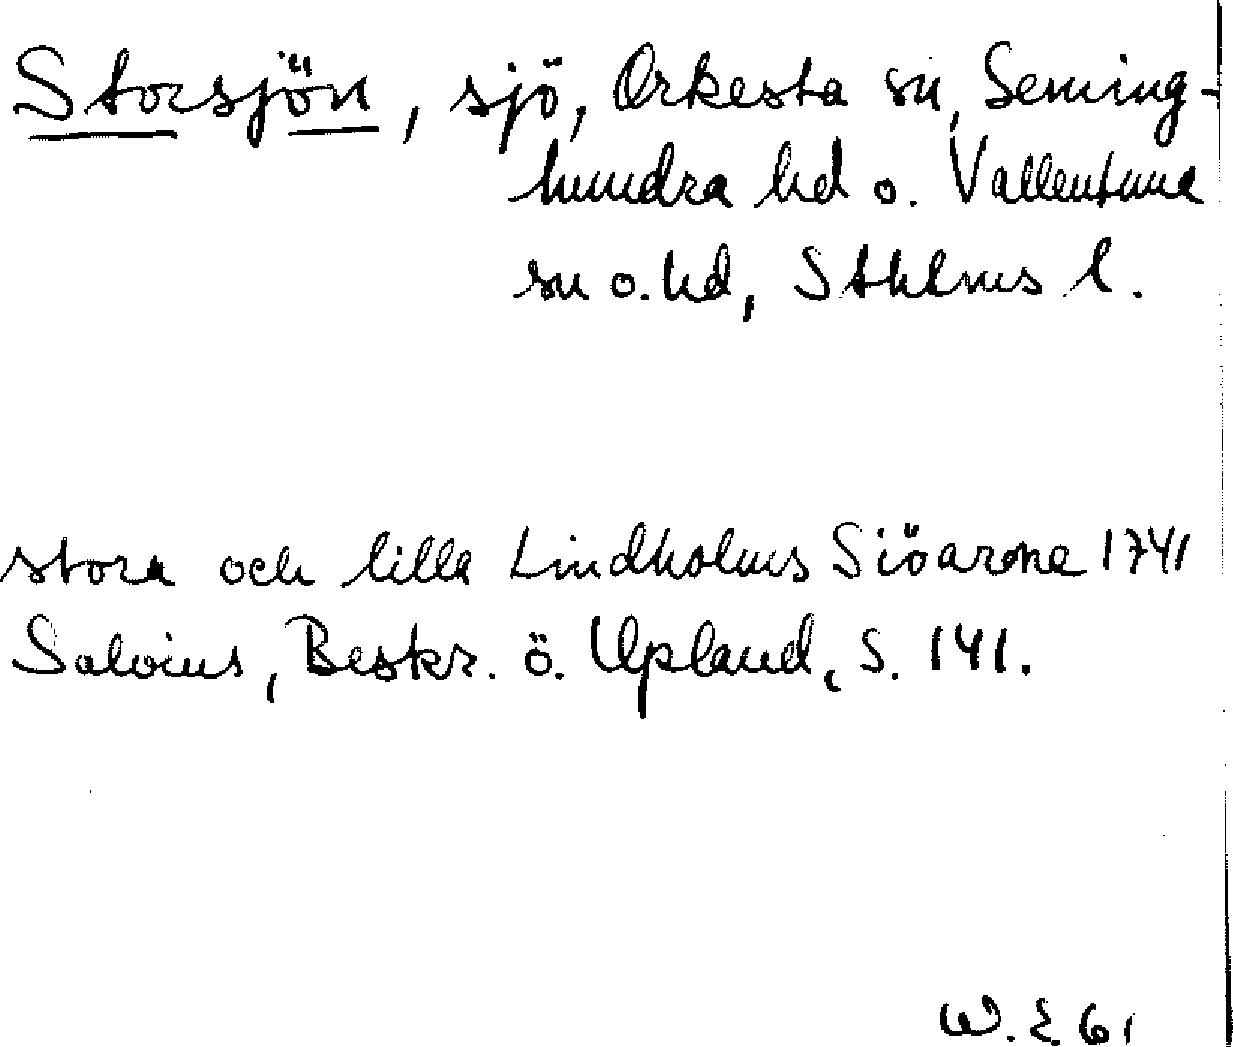 Storsjön, sjö, Orkesta sn, Seming-
hundra hd o. Vallentuna
sn o. hd, Sthlms l.
stora och lilla Lindholms Siöarne 1741
Salvius, Beskr. ö. Upland, S. 141.
W. E. 61